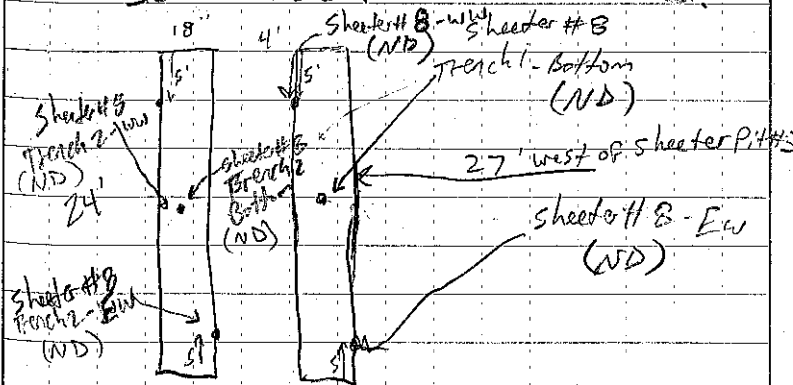 18"
4'
Sheeter # 8 - WW
(ND)
Sheeter # 8
Trench 1 - Bottom
(ND)
5'
5'
Sheeter # 8
Trench 2 - WW
(ND)
24'
Sheeter # 8
Trench 2
Bottom
(ND)
27' west of Sheeter Pit #3
Sheeter # 8 - EW
(ND)
Sheeter # 8
Trench 2 - EW
(ND)
5'
5'